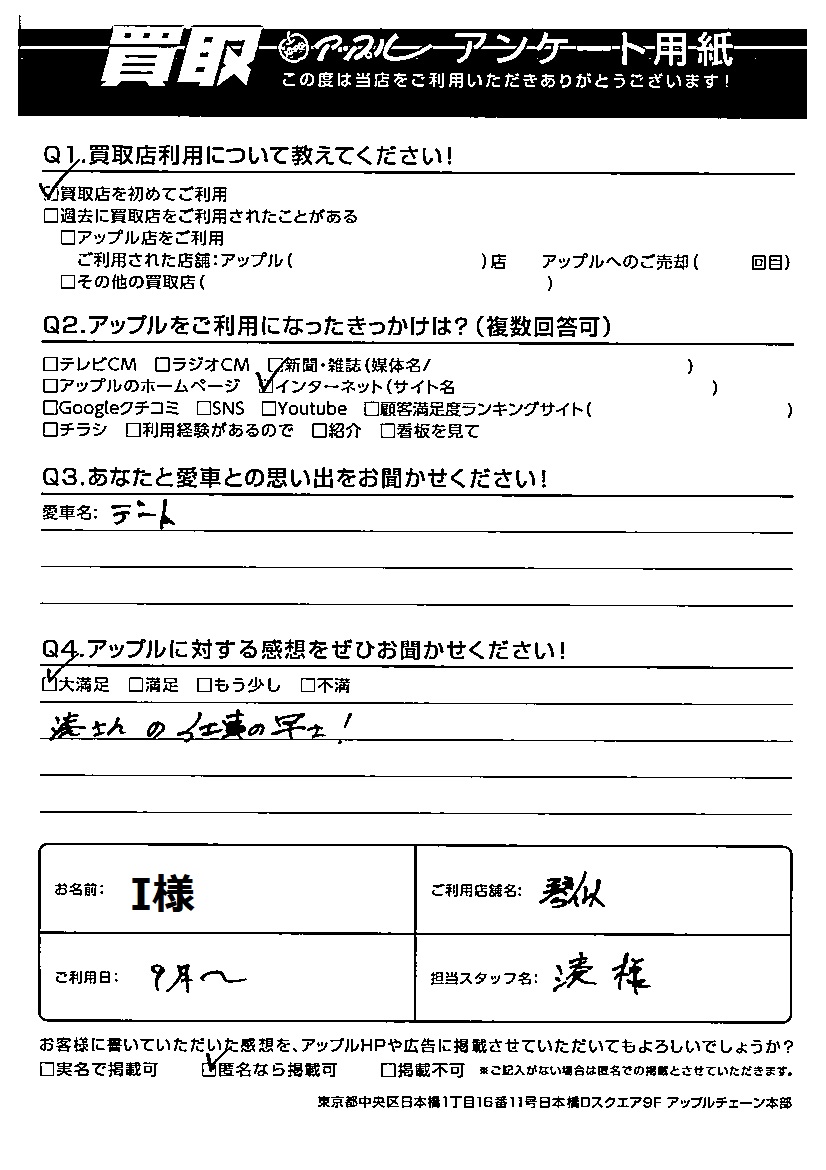 買取 アップル アンケート用紙
この度は当店をご利用いただきありがとうございます!
Q1.買取店利用について教えてください!
☑買取店を初めてご利用
□過去に買取店をご利用されたことがある
□アップル店をご利用
ご利用された店舗:アップル( )店 アップルへのご売却( 回目)
□その他の買取店( )
Q2.アップルをご利用になったきっかけは?(複数回答可)
□テレビCM □ラジオCM □新聞・雑誌(媒体名/ )
□アップルのホームページ ☑インターネット(サイト名 )
□Googleクチコミ □SNS □Youtube □顧客満足度ランキングサイト( )
□チラシ □利用経験があるので □紹介 □看板を見て
Q3.あなたと愛車との思い出をお聞かせください!
愛車名:
Q4.アップルに対する感想をぜひお聞かせください!
☑大満足 □満足 □もう少し □不満
湊さんの仕事の早さ!
お名前: I様
ご利用店舗名: 琴似
ご利用日: 9月〜
担当スタッフ名: 湊様
お客様に書いていただいた感想を、アップルHPや広告に掲載させていただいてもよろしいでしょうか?
□実名で掲載可 ☑匿名なら掲載可 □掲載不可 ※ご記入がない場合は匿名での掲載とさせていただきます。
東京都中央区日本橋1丁目16番11号日本橋Dスクエア9F アップルチェーン本部